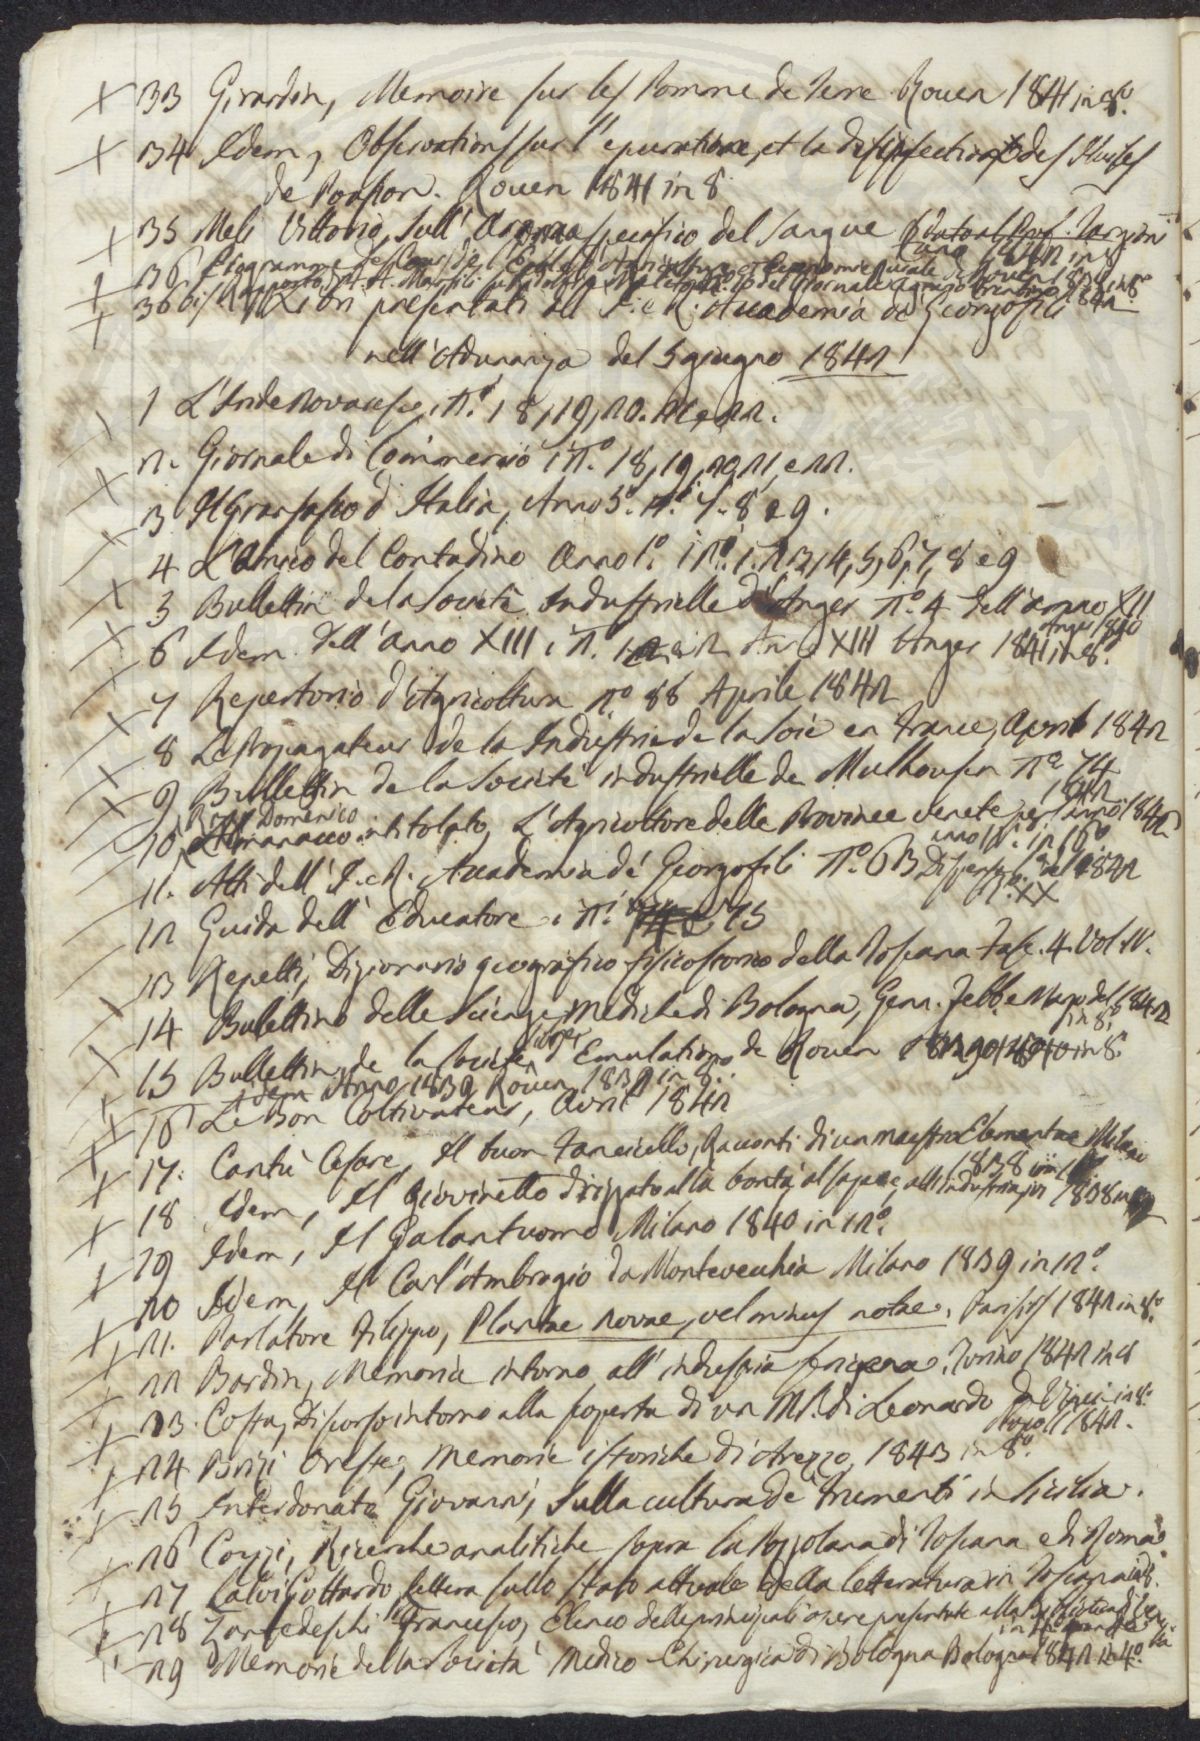 33 Girardin, Memoire sur les Pomme de Terre Rouen 1841 in 8.°
34 Idem, Observations sur l'epuration, et la desinfection des Huiles
de Poisson. Rouen 1841 in 8.
35 Meli Vittorio, Sull' Aroma specifico del Sangue
36 Programme
36 bis Rapporto
Libri presentati all' I. e R. Accademia de' Georgofili
nell'Adunanza del 5 giugno 1842
1 L'Indenovarese, i N.i 18, 19, 20. 21 e 22.
2. Giornale di Commercio i N.° 18, 19, 20, 21, e 22.
3 Il Gransasso d'Italia, Anno 5.° N.i 7. 8 e 9.
4 L'Amico del Contadino Anno 1.° i N.i 1. 2, 3, 4, 5, 6, 7, 8 e 9
5 Bullettin de la Societé Industrielle d'Anger N.° 4 dell'anno XII
Anger 1840
6 Idem dell'anno XIII i N. 1 e 2 Anno XIII Anger 1841 in 8.°
7 Repertorio d'Agricoltura N.° 88 Aprile 1842
8 Le Propagateur de la Industrie de la Soie en France, Avril 1842
9 Bullettin de la Societé industrielle de Mulhousen N.° 74
1842
Domenico
10 Almanacco intitolato, L'Agricoltore delle Provincie venete per l'anno 1842
anno in 16.°
11. Atti dell'I. e R. Accademia de' Georgofili N.° 63 Dispensa del 1842
XX
12 Guida dell' Educatore i N.i 74 e 75
13 Repetti, Dizionario geografico fisico storico della Toscana Fasc. 4. Vol. IV.
14 Bullettino delle Scienze mediche di Bologna, Genn. Febb. e Marzo del 1842
in 8.°
15 Bullettin de la Societé libre d'Emulation de Rouen 1840 in 8.°
Idem Anno 1839 Rouen 1839 in 8.°
16 Le Bon Coltivateur, Avril 1842
17. Cantù Cesare, Il buon Fanciullo, Racconti di un maestro Elementare Milano
1838 in
18 Idem, Il Giovinetto drizzato alla bontà, al sapere, all'industria
19 Idem, Il Galantuomo Milano 1840 in 12.°
20 Idem, Il Carl'Ambrogio da Montevecchia Milano 1839 in 12.°
21. Parlatore Filippo, Plantae novae, vel minus notae. Parisiis 1842 in 8.°
22 Bardin, Memoria intorno all'industria Torino 1842 in 8
23. Costa, Discorso intorno alla scoperta di un MS. di Leonardo da Vinci in 8.°
1842.
24 Brizi Oreste, Memorie istoriche di Arezzo, 1843 in 8.°
25 Interdonato Giovanni, Sulla cultura de' Frumenti in Sicilia.
26 Cozzi, Ricerche analitiche sopra la Pozzolana di Toscana e di Roma
27 Calvi Gottardo Lettera sullo stato attuale della letteratura in Toscana in 8.
28 Zantedeschi Francesco, Elenco delle principali opere presentate alla
29 Memorie della Società Medico-Chirurgica di Bologna Bologna 1842 in 4.°